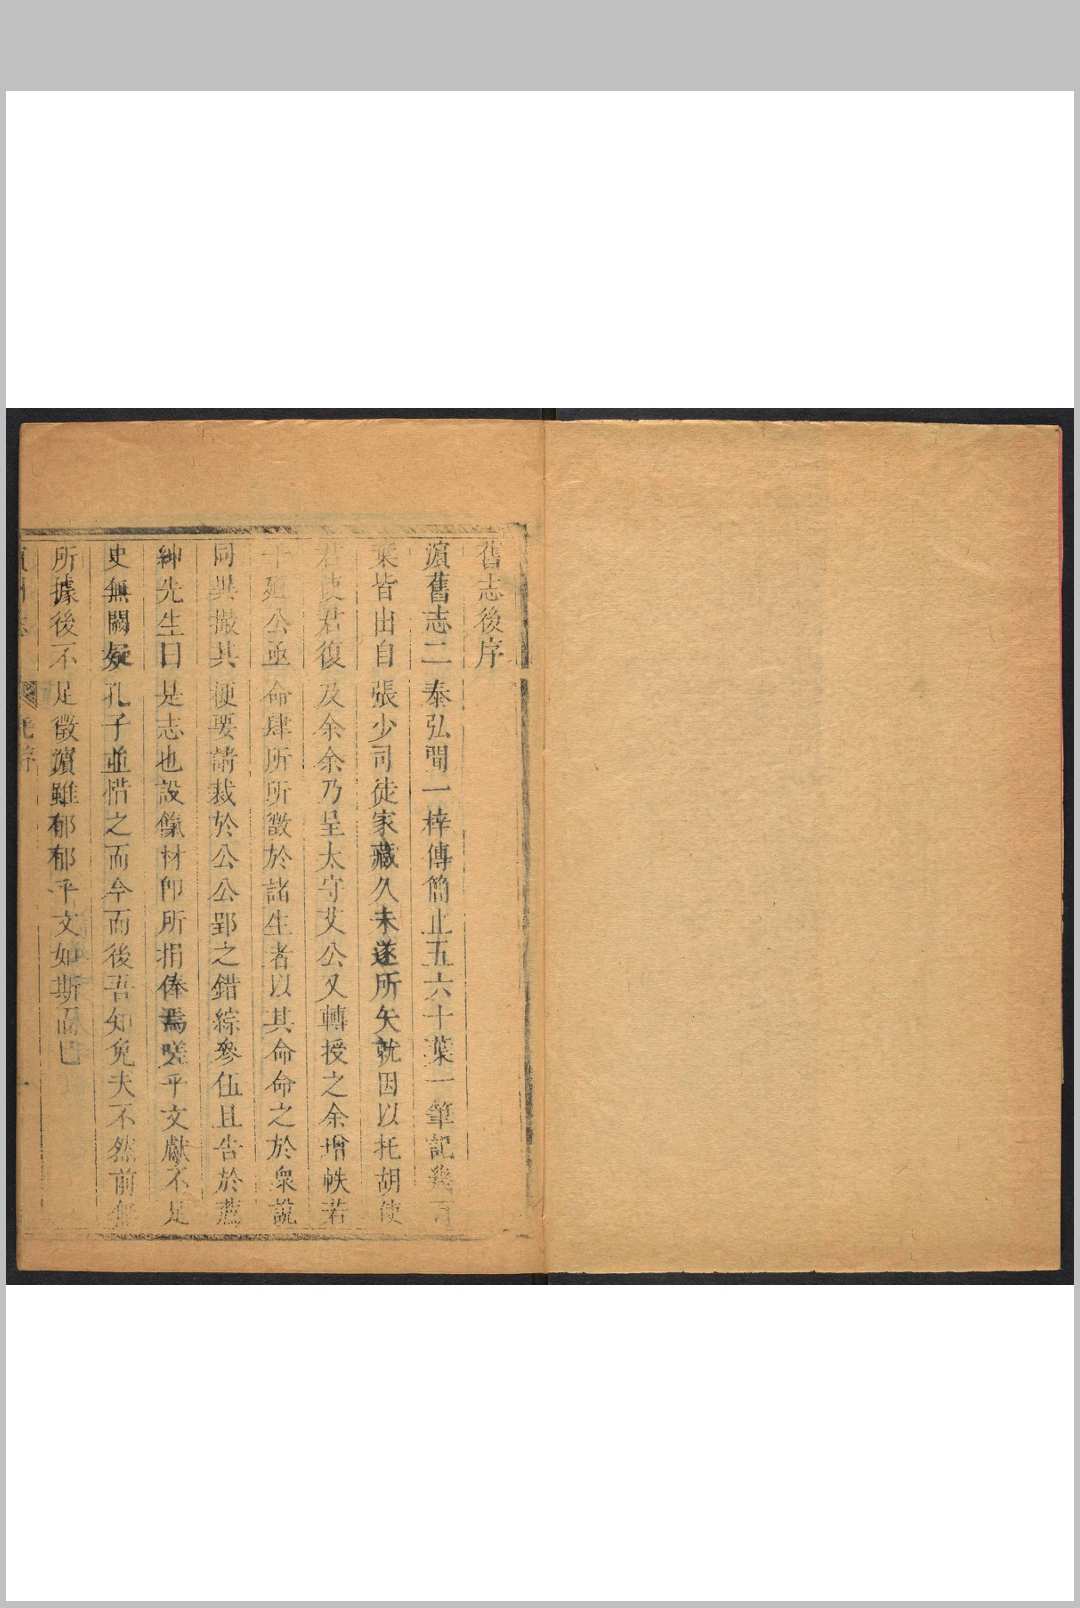 舊志後序
濵舊志二泰弘間一梓傳簡止五六十葉一筆記幾百
葉皆出自張少司徒家藏久未遂所矢就因以托胡使
君使君復及余余乃呈太守艾公又轉授之余增帙若
干廼公亟命肆所所徵於諸生者以其命命之於衆說
同異撮其便要請裁於公公郢之錯綜參伍且告於薦
紳先生曰是志也設餼材卽所捐俸焉嗟乎文獻不足
史無闕疑孔子並惜之而今而後吾知免夫不然前無
所據後不足徵濵雖郁郁乎文如斯而已